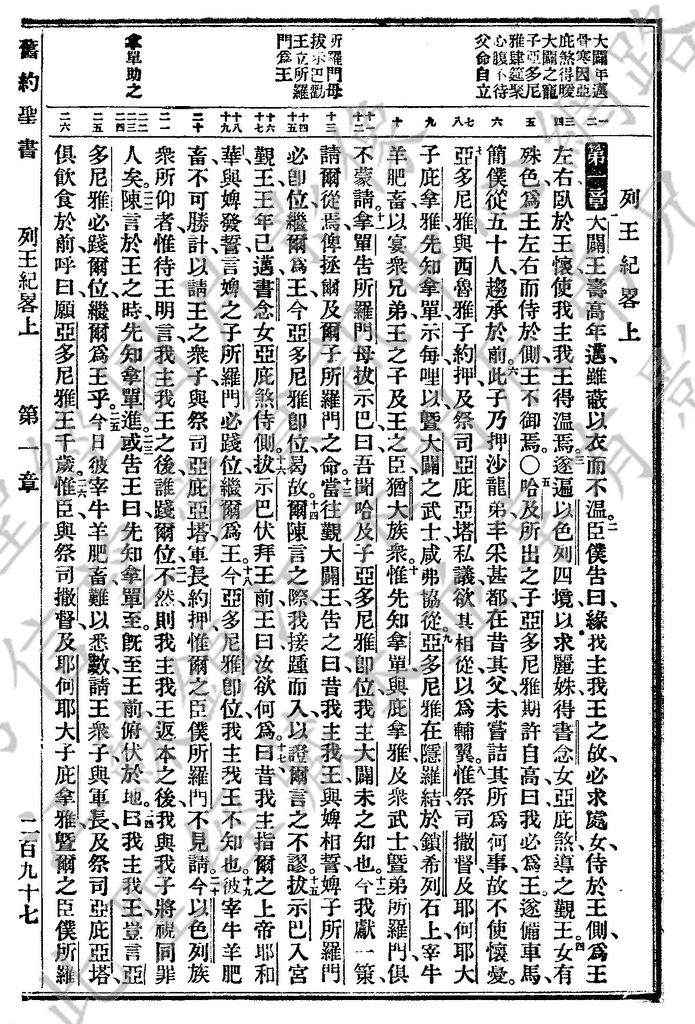 列王紀畧上
第一章大闢王壽高年邁雖蔽以衣而不溫臣僕告曰緣我主我王之故必求處女侍於王側爲王
左右臥於王懷使我主我王得溫焉遂遍以色列四境以求麗姝得書念女亞庇煞導之覲王女有
殊色爲王左右而侍於側王不御焉〇哈及所出之子亞多尼雅期許自高曰我必爲王遂備車馬
簡僕從五十人趨承於前此子乃押沙龍弟丰采甚都在昔其父未嘗詰其所爲何事故不使懷憂
亞多尼雅與西魯雅子約押及祭司亞庇亞塔私議欲其相從以爲輔翼惟祭司撒督及耶何耶大
子庇拿雅先知拿單示每哩以暨大闢之武士咸弗協從亞多尼雅在隱羅結於鎖希列石上宰牛
羊肥畜以宴衆兄弟王之子及王之臣猶大族衆惟先知拿單與庇拿雅及衆武士暨弟所羅門俱
不蒙請拿單告所羅門母拔示巴曰吾聞哈及子亞多尼雅卽位我主大闢未之知也今我獻一策
請爾從焉俾拯爾及爾子所羅門之命當往覲大闢王告之曰昔我主我王與婢相誓婢子所羅門
必卽位繼爾爲王今亞多尼雅卽位曷故爾陳言之際我接踵而入以證爾言之不謬拔示巴入宮
覲王王年已邁書念女亞庇煞侍側拔示巴伏拜王前王曰汝欲何爲曰昔我主指爾之上帝耶和
華與婢發誓言婢之子所羅門必踐位繼爾爲王今亞多尼雅卽位我主我王不知也彼宰牛羊肥
畜不可勝計以請王之衆子與祭司亞庇亞塔軍長約押惟爾之臣僕所羅門不見請今以色列族
衆所仰者惟待王明言我主我王之後誰踐爾位不然則我主我王返本之後我與我子將視同罪
人矣陳言於王之時先知拿單進或告王曰先知拿單至旣至王前俯伏於地曰我主我王豈言亞
多尼雅必踐爾位繼爾爲王乎今日彼宰牛羊肥畜難以悉數請王衆子與軍長及祭司亞庇亞塔
俱飲食於前呼曰願亞多尼雅王千歲惟臣與祭司撒督及耶何耶大子庇拿雅暨爾之臣僕所羅
大闢年邁
骨寒因亞
庇煞得暖
大闢之寵
子亞多尼
雅肆筵聚
心腹不待
父命自立
所羅門母
拔示巴勸
王立所羅
門爲王
拿單助之
舊約聖書 列王紀畧上 第一章 二百九十七